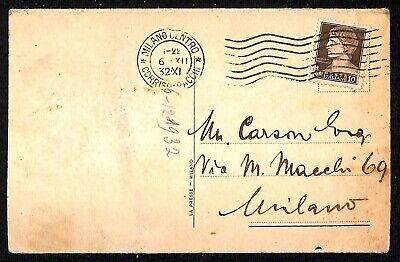 MILANO CENTRO
CORRISP. PACCHI
1-22
6 XII
32 XI
10
6-12-1932
LA PRESSE - MILANO
Mr. Carson Eng.
Via M. Macchi 69
Milano